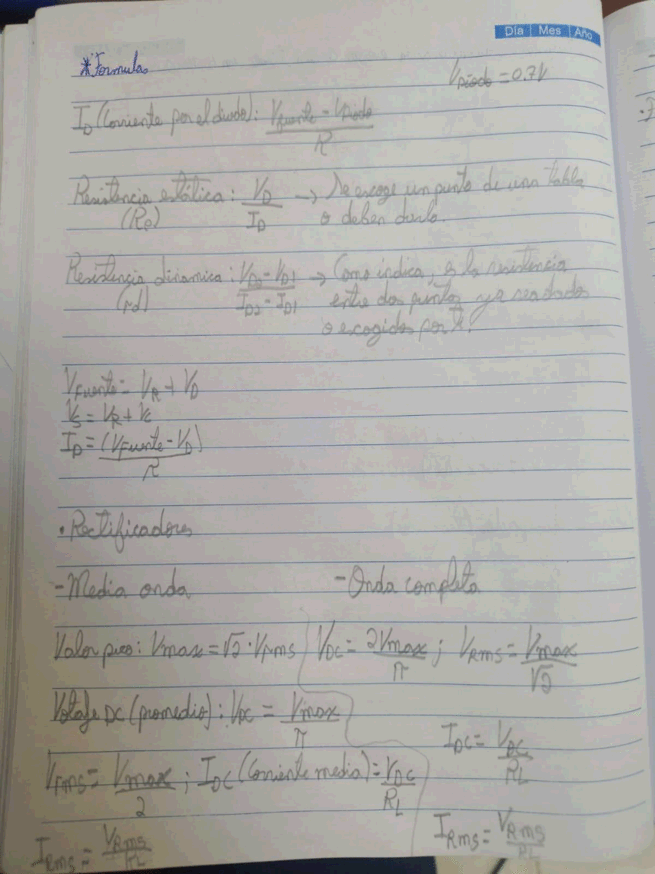 Día Mes Año
*Formulas
V_Diodo = 0.7V
I_D (Corriente por el diodo): (V_Fuente - V_Diodo)/R
Resistencia estática: V_D/I_D → Se escoge un punto de una tabla
(R_e) o deben darlo.
Resistencia dinamica: (V_D2 - V_D1)/(I_D2 - I_D1) → Como indica, es la resistencia
(rd) entre dos puntos ya dados
o escogidos por ti.
V_Fuente = V_R + V_D
V_S = V_R + V_
I_D = (V_Fuente - V_D)/R
• Rectificadores
- Media onda
- Onda completa
Valor pico: Vmax = √2 · Vrms
V_DC = 2Vmax/π ; V_RMS = Vmax/√2
Voltaje DC (promedio): V_DC = Vmax/π
I_DC = V_DC/R_L
Vrms = Vmax/2 ; I_DC (Corriente media) = V_DC/R_L
I_Rms = V_Rms/R_L
I_Rms = V_Rms/R_L